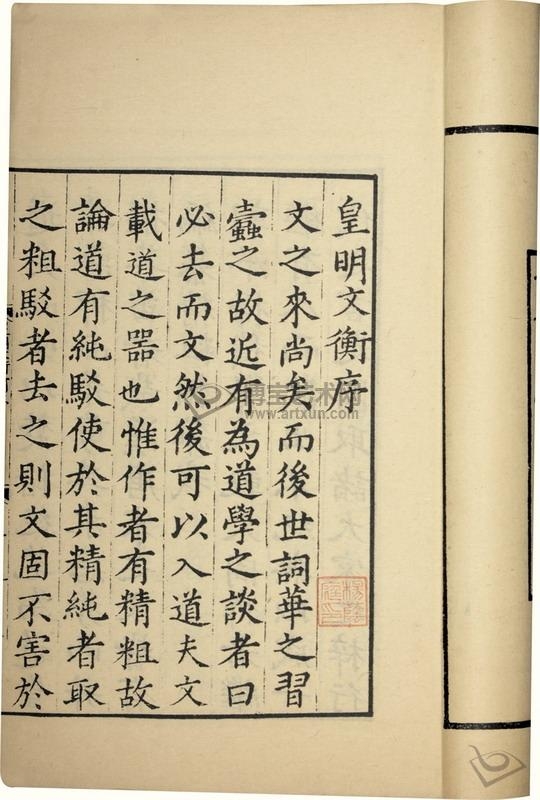 皇明文衡序
文之來尚矣而後世詞華之習
蠹之故近有為道學之談者曰
必去而文然後可以入道夫文
載道之器也惟作者有精粗故
論道有純駁使於其精純者取
之粗駁者去之則文固不害於
博宝艺术网
www.artxun.com